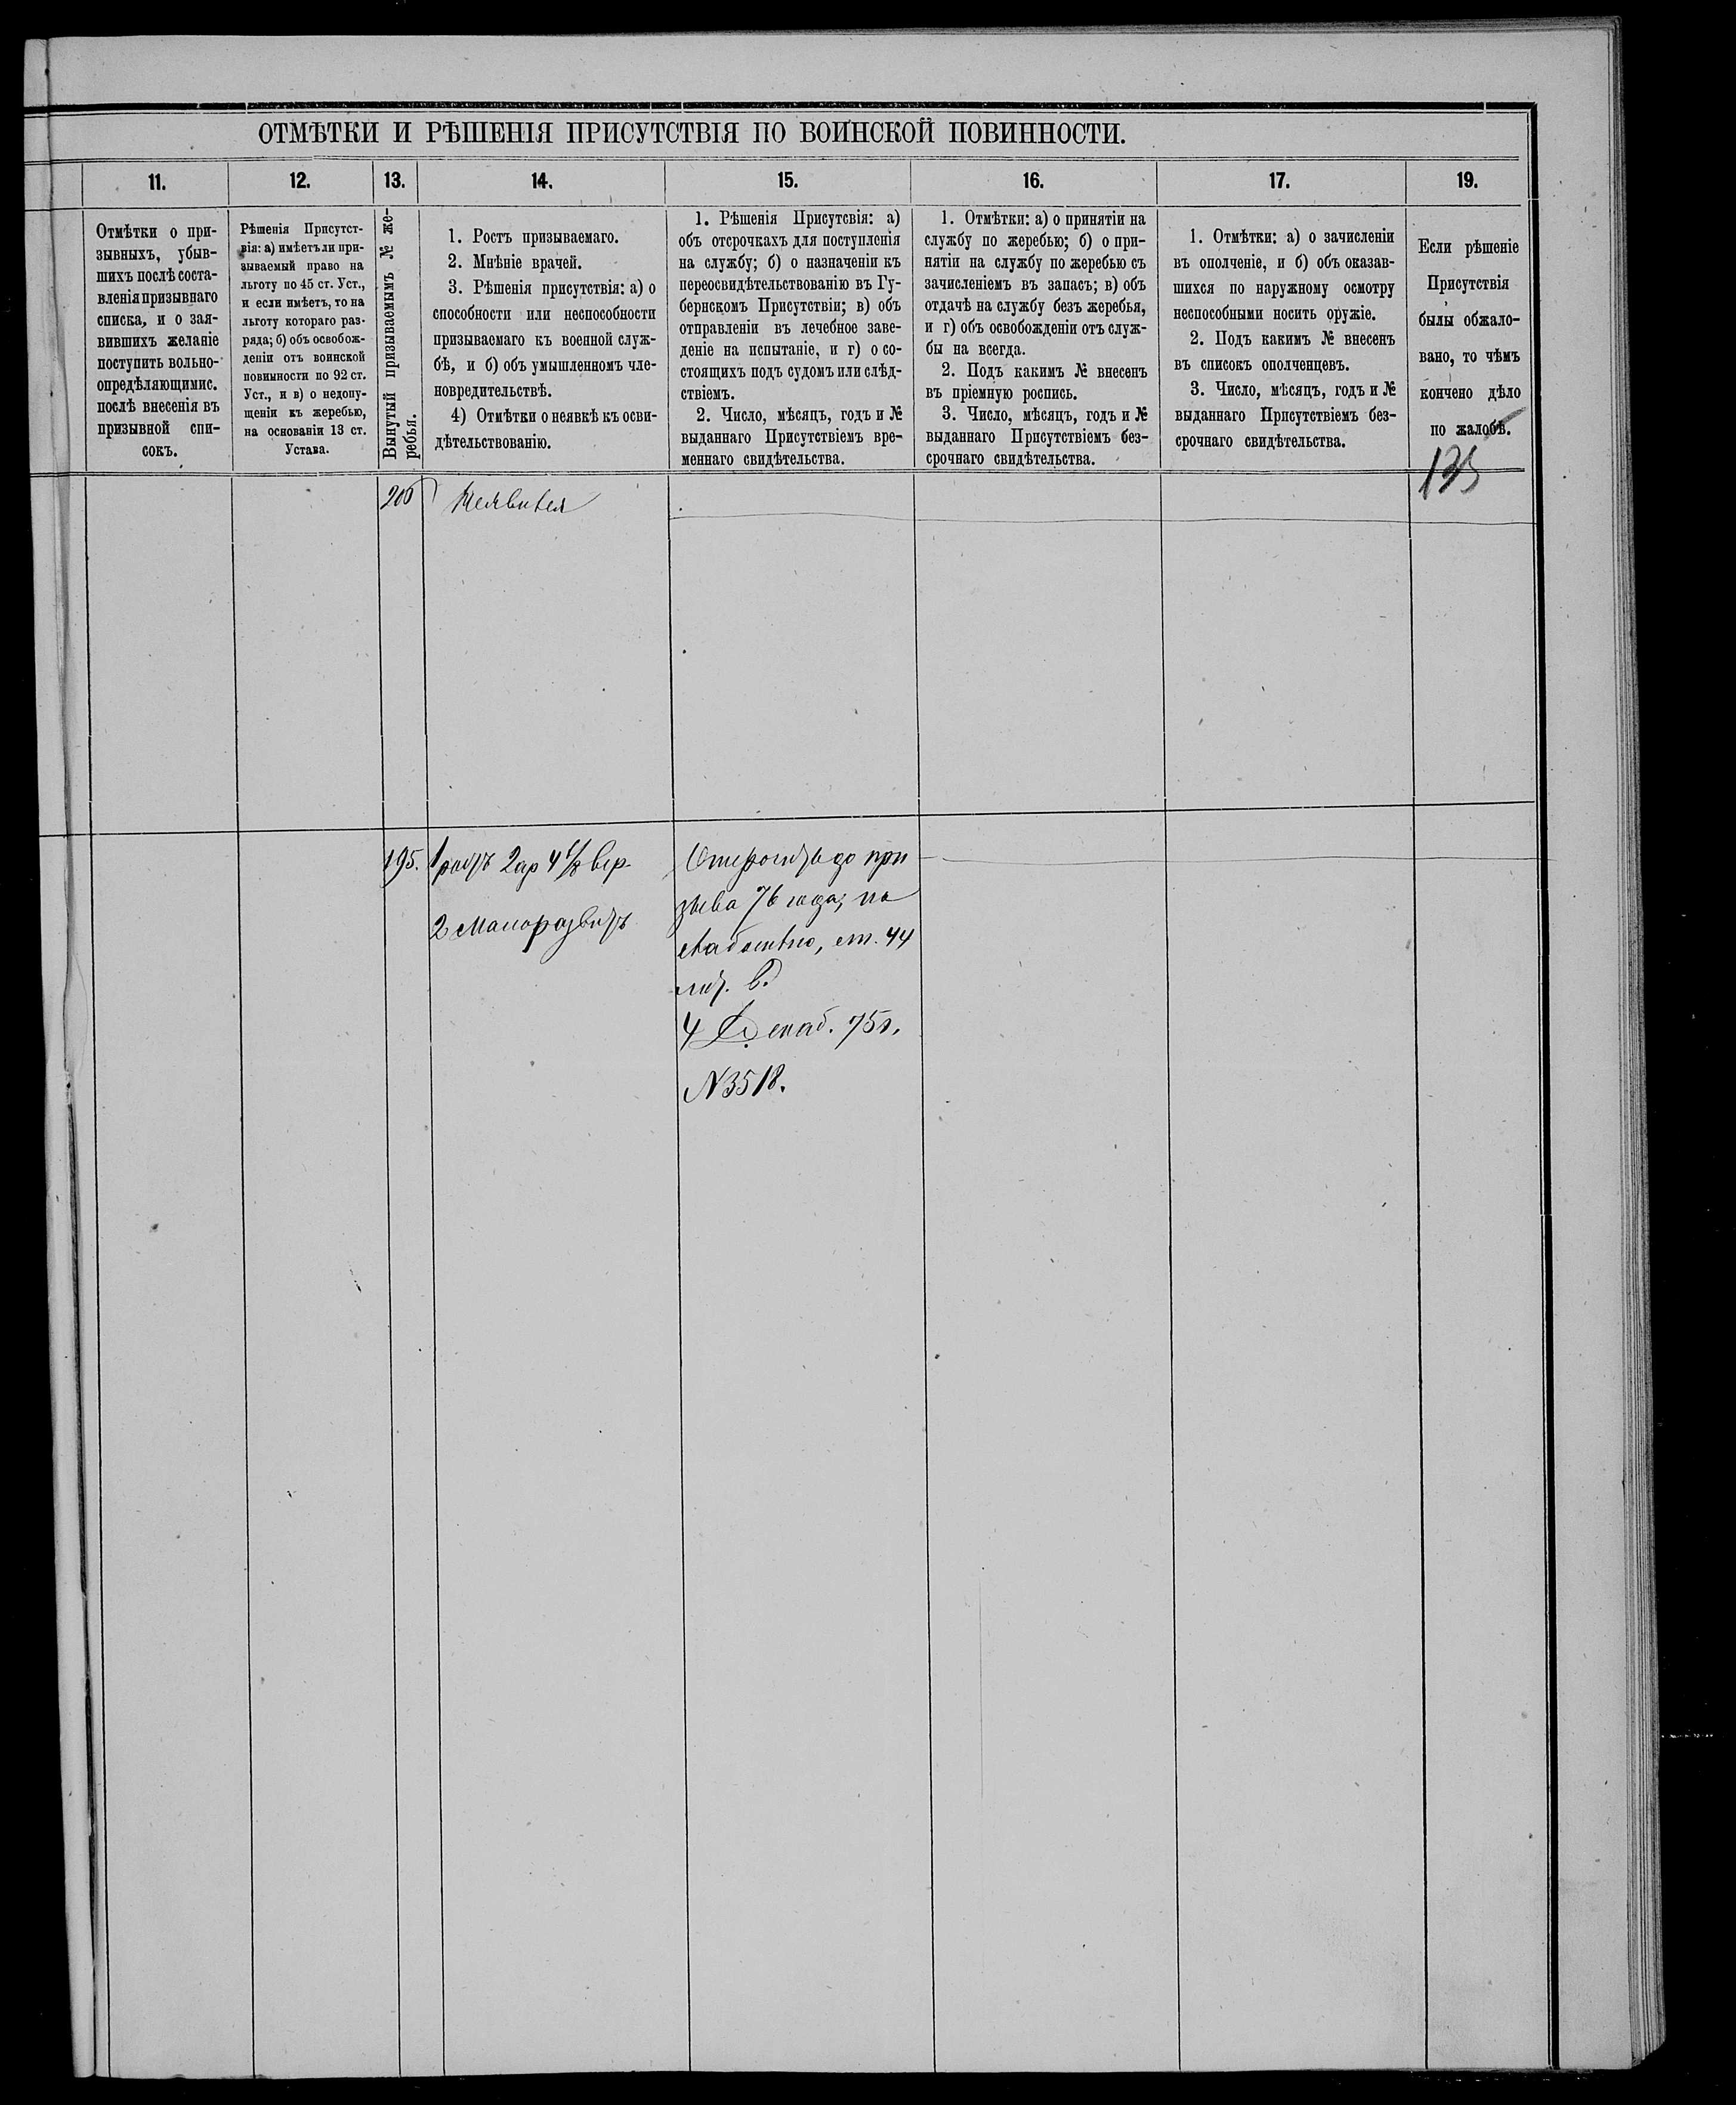 ОТМѢТКИ И РѢШЕНІЯ ПРИСУТСТВІЯ ПО ВОИНСКОЙ ПОВИННОСТИ.
11.
12.
13.
14.
15.
16.
17.
19.
Отмѣтки о при-
зывныхъ, убыв-
шихъ послѣ соста-
вленія призывнаго
списка, и о зая-
вившихъ желаніе
поступить вольно-
опредѣляющимис.
послѣ внесенія въ
призывной спи-
сокъ.
Рѣшенія Присутст-
вія: а) имѣетъ ли при-
зываемый право на
льготу по 45 ст. Уст.,
и если имѣетъ, то на
льготу котораго раз-
ряда; б) объ освобож-
деніи отъ воинской
повинности по 92 ст.
Уст., и в) о недопу-
щеніи къ жеребью,
на основаніи 13 ст.
Устава.
Вынутый призываемымъ № же-
ребья.
1. Ростъ призываемаго.
2. Мнѣніе врачей.
3. Рѣшенія присутствія: а) о
способности или неспособности
призываемаго къ военной служ-
бѣ, и б) объ умышленномъ чле-
новредительствѣ.
4) Отмѣтки о неявкѣ къ осви-
дѣтельствованію.
1. Рѣшенія Присутсвія: а)
объ отсрочкахъ для поступленія
на службу; б) о назначеніи къ
переосвидѣтельствованію въ Гу-
бернскомъ Присутствіи; в) объ
отправленіи въ лечебное заве-
деніе на испытаніе, и г) о со-
стоящихъ подъ судомъ или слѣд-
ствіемъ.
2. Число, мѣсяцъ, годъ и №
выданнаго Присутствіемъ вре-
меннаго свидѣтельства.
1. Отмѣтки: а) о принятіи на
службу по жеребью; б) о при-
нятіи на службу по жеребью съ
зачисленіемъ въ запасъ; в) объ
отдачѣ на службу безъ жеребья,
и г) объ освобожденіи отъ служ-
бы на всегда.
2. Подъ какимъ № внесенъ
въ пріемную роспись.
3. Число, мѣсяцъ, годъ и №
выданнаго Присутствіемъ без-
срочнаго свидѣтельства.
1. Отмѣтки: а) о зачисленіи
въ ополченіе, и б) объ оказав-
шихся по наружному осмотру
неспособными носить оружіе.
2. Подъ какимъ № внесенъ
въ списокъ ополченцевъ.
3. Число, мѣсяцъ, годъ и №
выданнаго Присутствіемъ без-
срочнаго свидѣтельства.
Если рѣшеніе
Присутствія
былы обжало-
вано, то чѣмъ
кончено дѣло
по жалобѣ.
Неявился
195.
1 ростъ 2 ар 4 1/8 вер.
2 Малоразвитъ
Отсрочить до при
зыва 76 года, по
слабости, ст. 44
лит. в.
4 Декаб. 75 г.
N 3518.